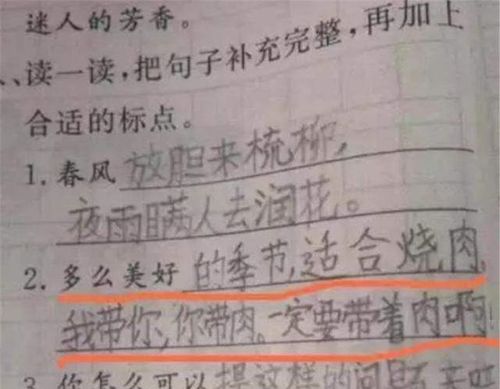 迷人的芳香。
、读一读,把句子补充完整,再加上
合适的标点。
1. 春风放胆来梳柳,
夜雨瞒人去润花。
2. 多么美好的季节,适合烧肉,
我带你,你带肉。一定要带着肉啊
3 你怎么可以提这样的问题